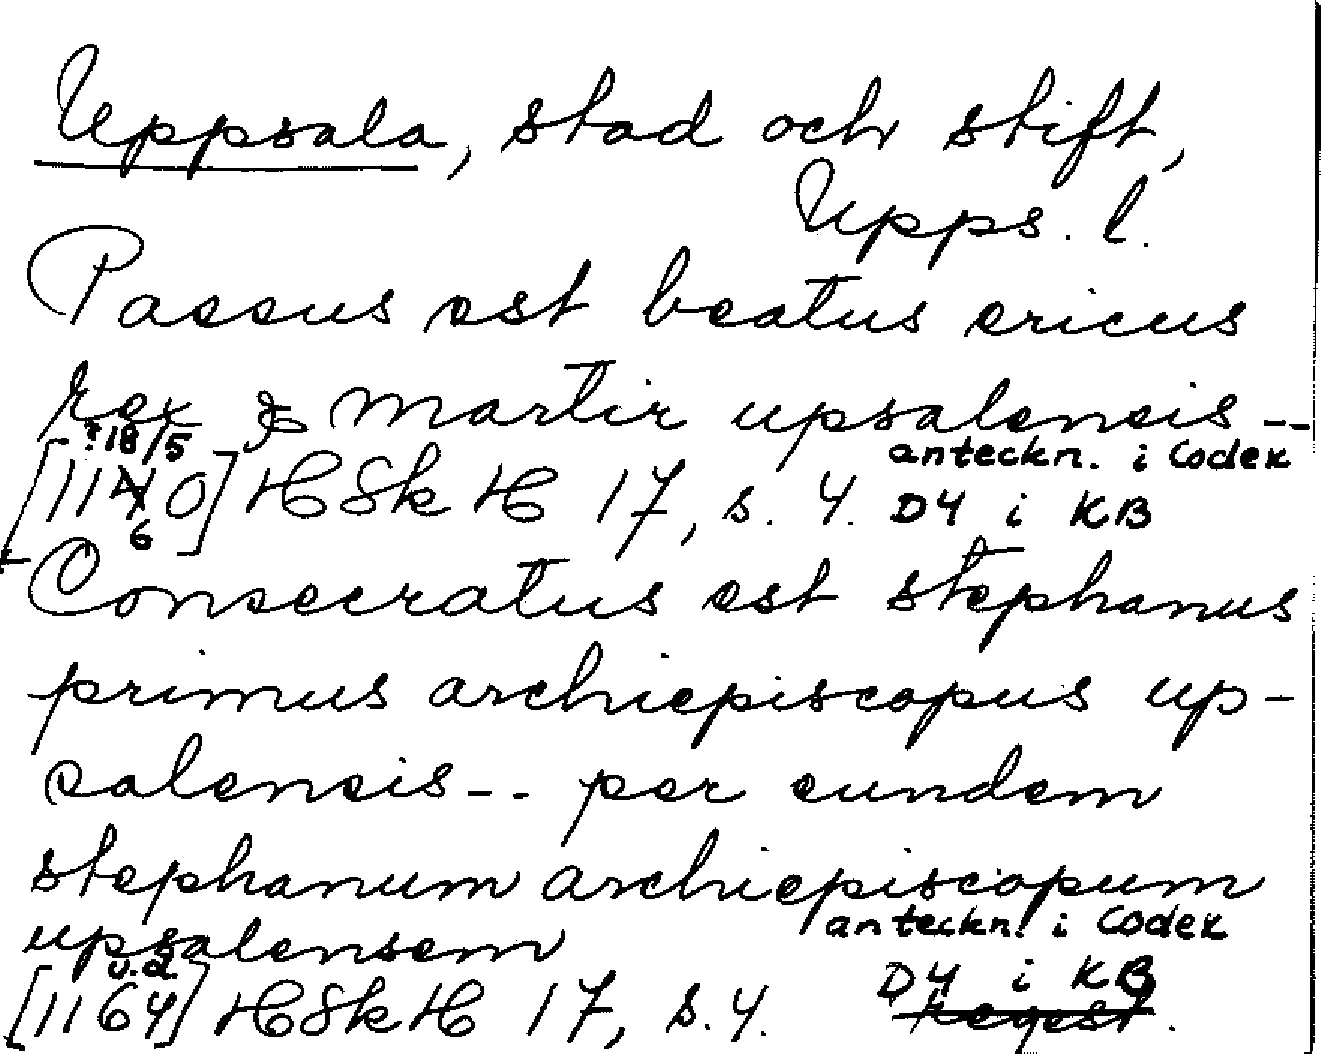 Uppsala, stad och stift,
Upps. l.
Passus est beatus ericus
rex & martir upsalensis --
?18/5
[1140] HSkH 17, s. 4. anteckn. i Codex
6 D4 i KB
Consecratus est stephanus
primus archiepiscopus up-
salensis -- per eundem
stephanum archiepiscopum
upsalensem
u.d.
[1164] HSkH 17, s. 4. anteckn. i Codex
D4 i KB
Regest.